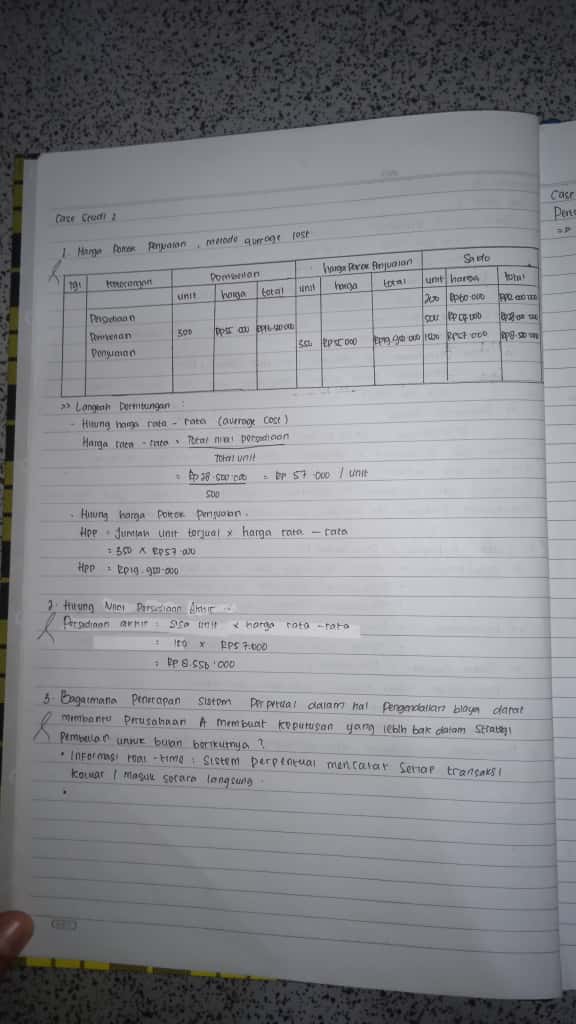 Case Studi 2
Case
1. Harga Pokok Penjualan, metode average cost
tgl Keterangan Pembelian Harga Pokok Penjualan Saldo
unit harga total unit harga total unit harga total
Persediaan 200 Rp60.000
Pembelian 300 Rp55.000 500
Penjualan 350 Rp57.000
>> Langkah Perhitungan :
- Hitung harga rata - rata (average cost)
Harga rata - rata = Total nilai persediaan
Total unit
= Rp28.500.000 = Rp 57.000 / unit
500
- Hitung harga pokok penjualan.
HPP = Jumlah unit terjual x harga rata - rata
= 350 x Rp57.000
HPP = Rp19.950.000
2. Hitung Nilai Persediaan Akhir
Persediaan akhir = sisa unit x harga rata-rata
= 150 x Rp57.000
= Rp 8.550.000
3. Bagaimana Penerapan sistem Perpetual dalam hal Pengendalian biaya dapat
membantu Perusahaan A membuat keputusan yang lebih baik dalam strategi
Pembelian untuk bulan berikutnya ?
• Informasi real-time : Sistem perpentual mencatat setiap transaksi
keluar / masuk secara langsung.
•